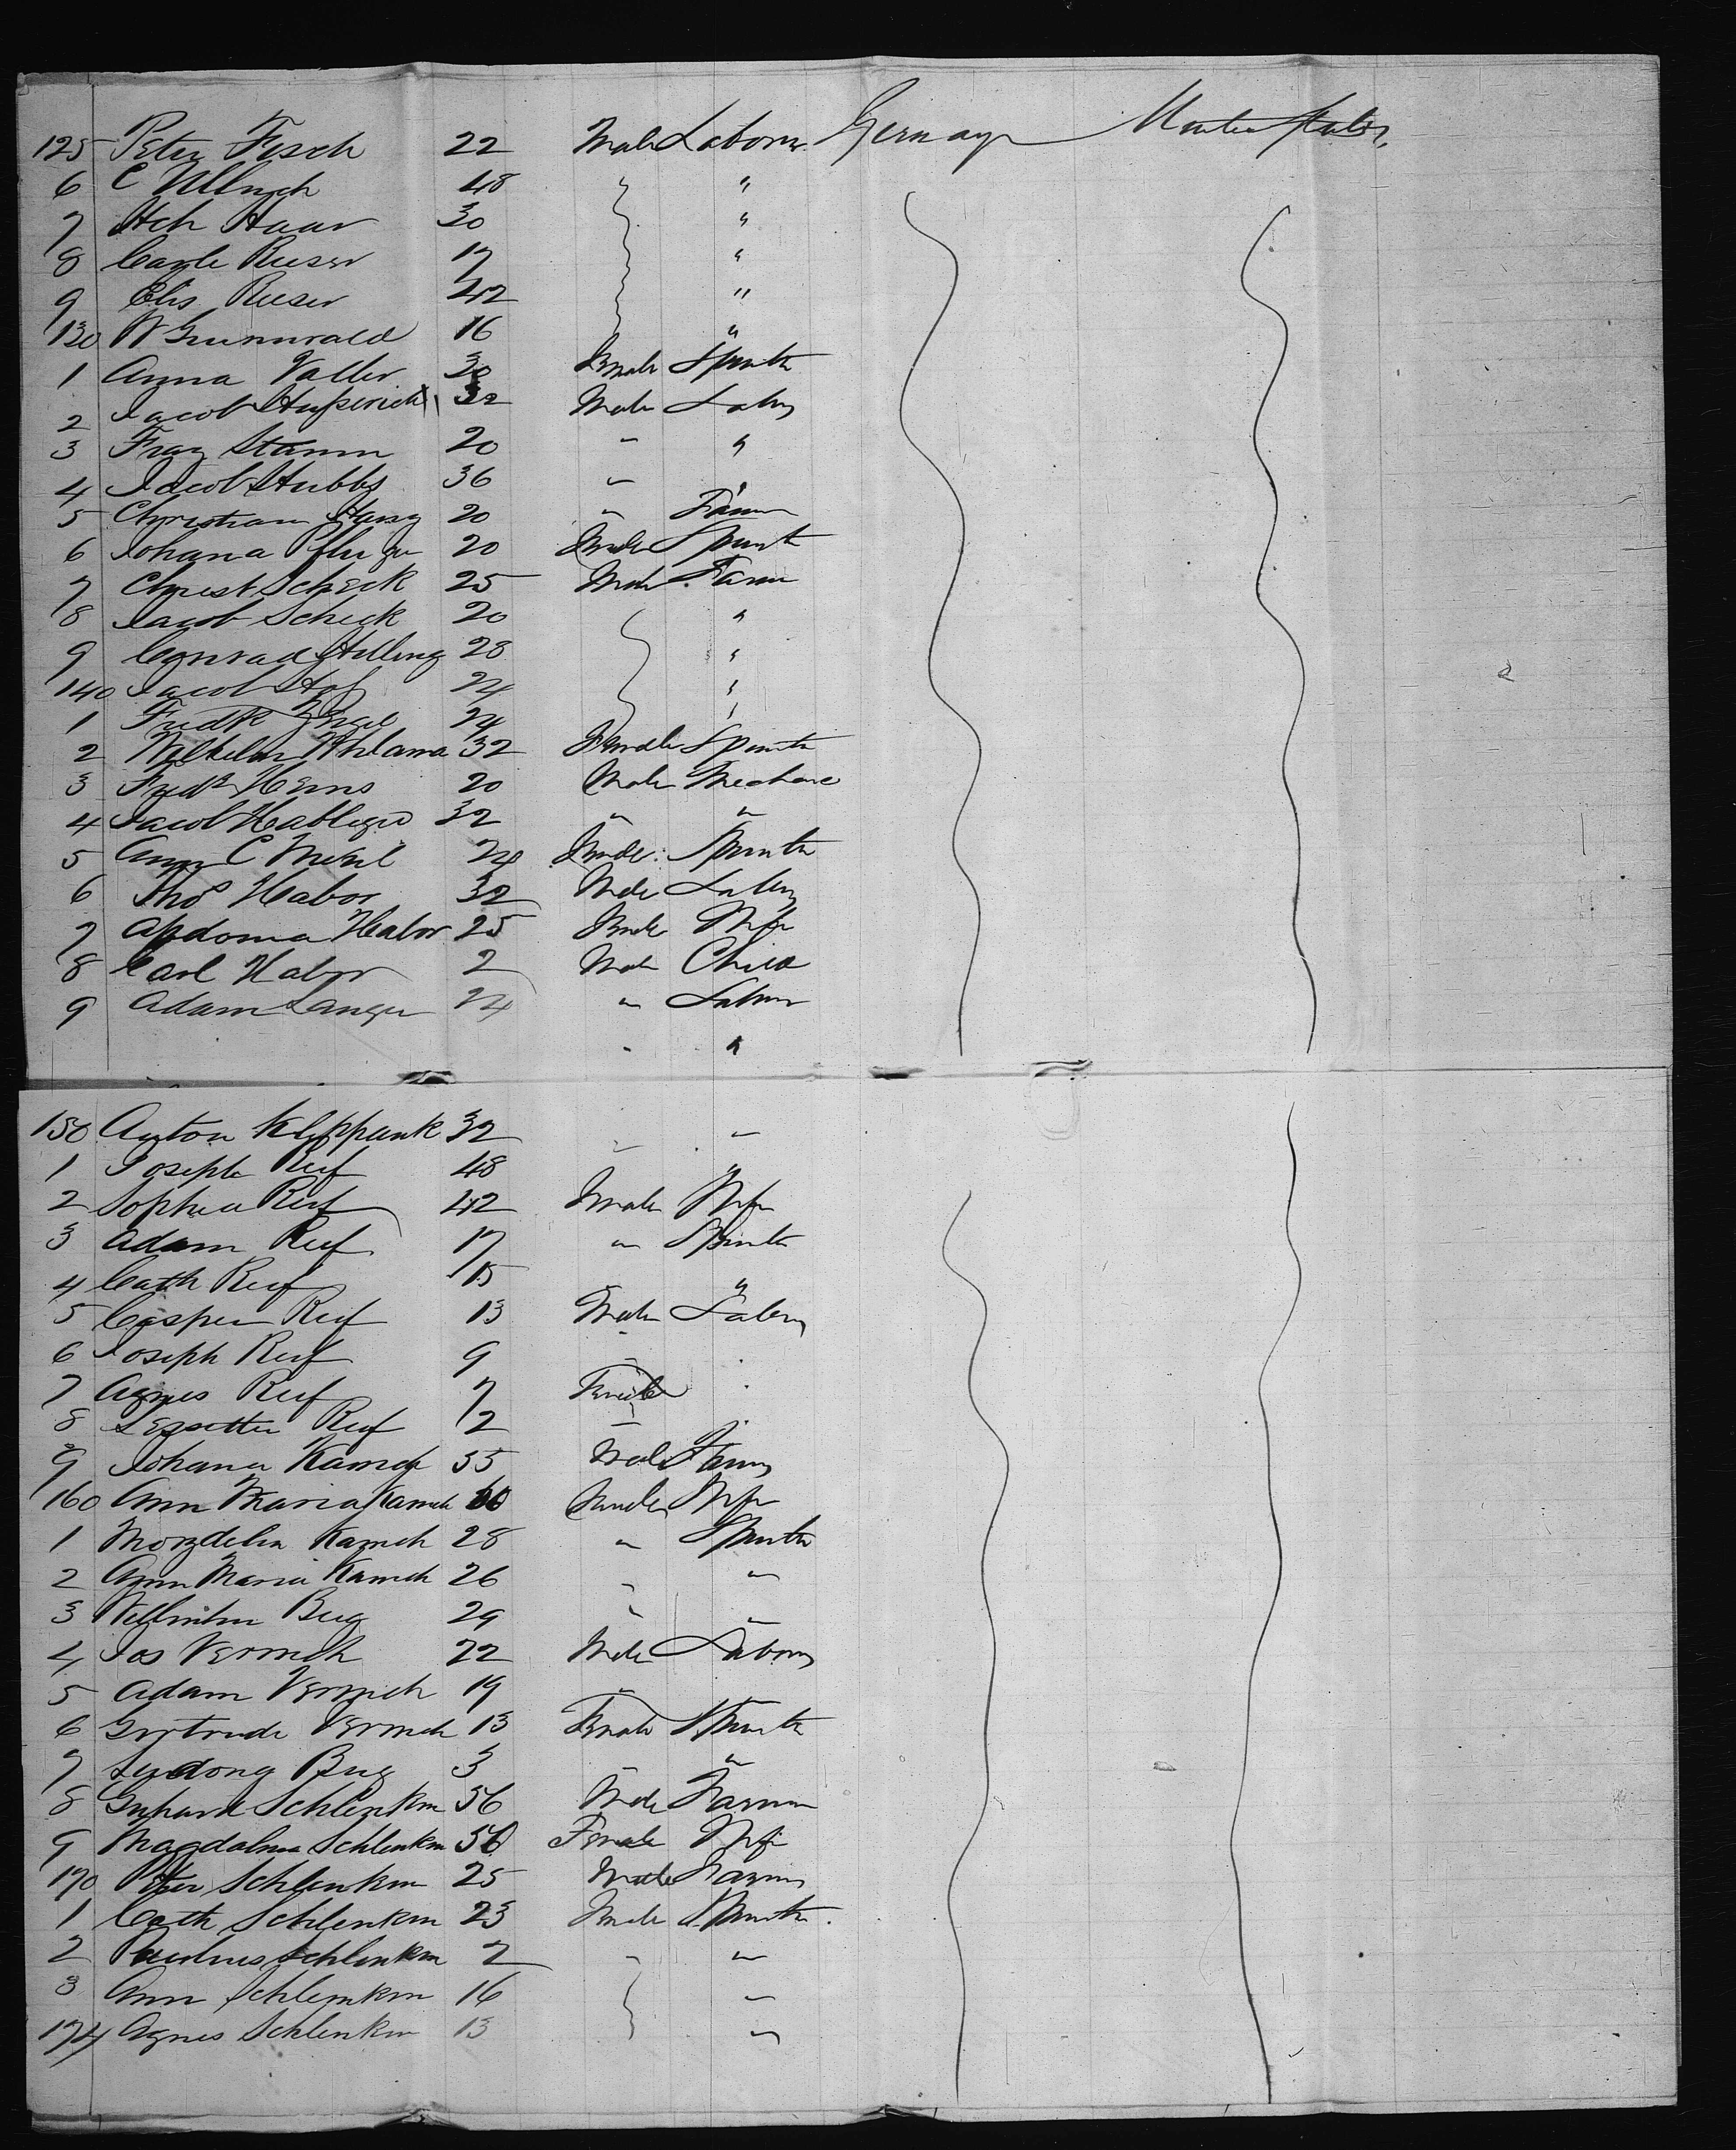 125 Peter Fisch 22 Male Laborer Germany United States.
6 C Ullrich 48 "
7 Hch Haar 30 "
8 Carle Rieser 17 "
9 Elis Rieser 42 "
130 W Grunwald 16 "
1 Anna Valler 30 Female Spinster
2 Jacob 32 Male Labor
3 Franz Stamm 20 " "
4 Jacob Stubbs 36 " "
5 Christian 20 " Farmer
6 Johana Pfluger 20 Female Spinster
7 Christ Scheck 25 Male Farmer
8 Jacob Scheck 20 "
9 Conrad Helling 28 "
140 Jacob Hof 24 "
1 Fredk Engel 24 "
2 Wilhelm 32 Female Spinster
3 Fredk Herns 20 Male Mechanic
4 Jacob Habliger 32 " "
5 Ann C 24 Female Spinster
6 Thos Habor 32 Male Labor
7 Apdoma Habor 25 Female Wife
8 Carl Habor 2 Male Child
9 Adam Langer 24 " Labor
" "
150 Anton Kleppank 32 " "
1 Joseph Reif 48 "
2 Sophia Reif 42 Female Wife
3 Adam Reif 17 " Spinster
4 Cath Reif 15 "
5 Casper Reif 13 Male Labor
6 Joseph Reif 9 "
7 Agnes Reif 7 Female
8 Lessette Reif 2 "
9 Johana Kamch 55 Male Farmer
160 Ann Maria Kamch 60 Female Wife
1 Kamch 28 " Spinster
2 Ann Maria Kamch 26 " "
3 Bug 29 " "
4 Jos Vermch 22 Male Labor
5 Adam Vermch 19 "
6 Gertrude Vermch 13 Female Spinster
7 Bug 3 " "
8 Schlenkm 56 Male Farmer
9 Magdalena Schlenkm 50 Female Wife
170 Peter Schlenkm 25 Male Farmer
1 Cath Schlenkm 23 Female Spinster
2 Schlenkm 2 " "
3 Ann Schlenkm 16 "
174 Agnes Schlenkm 13 "